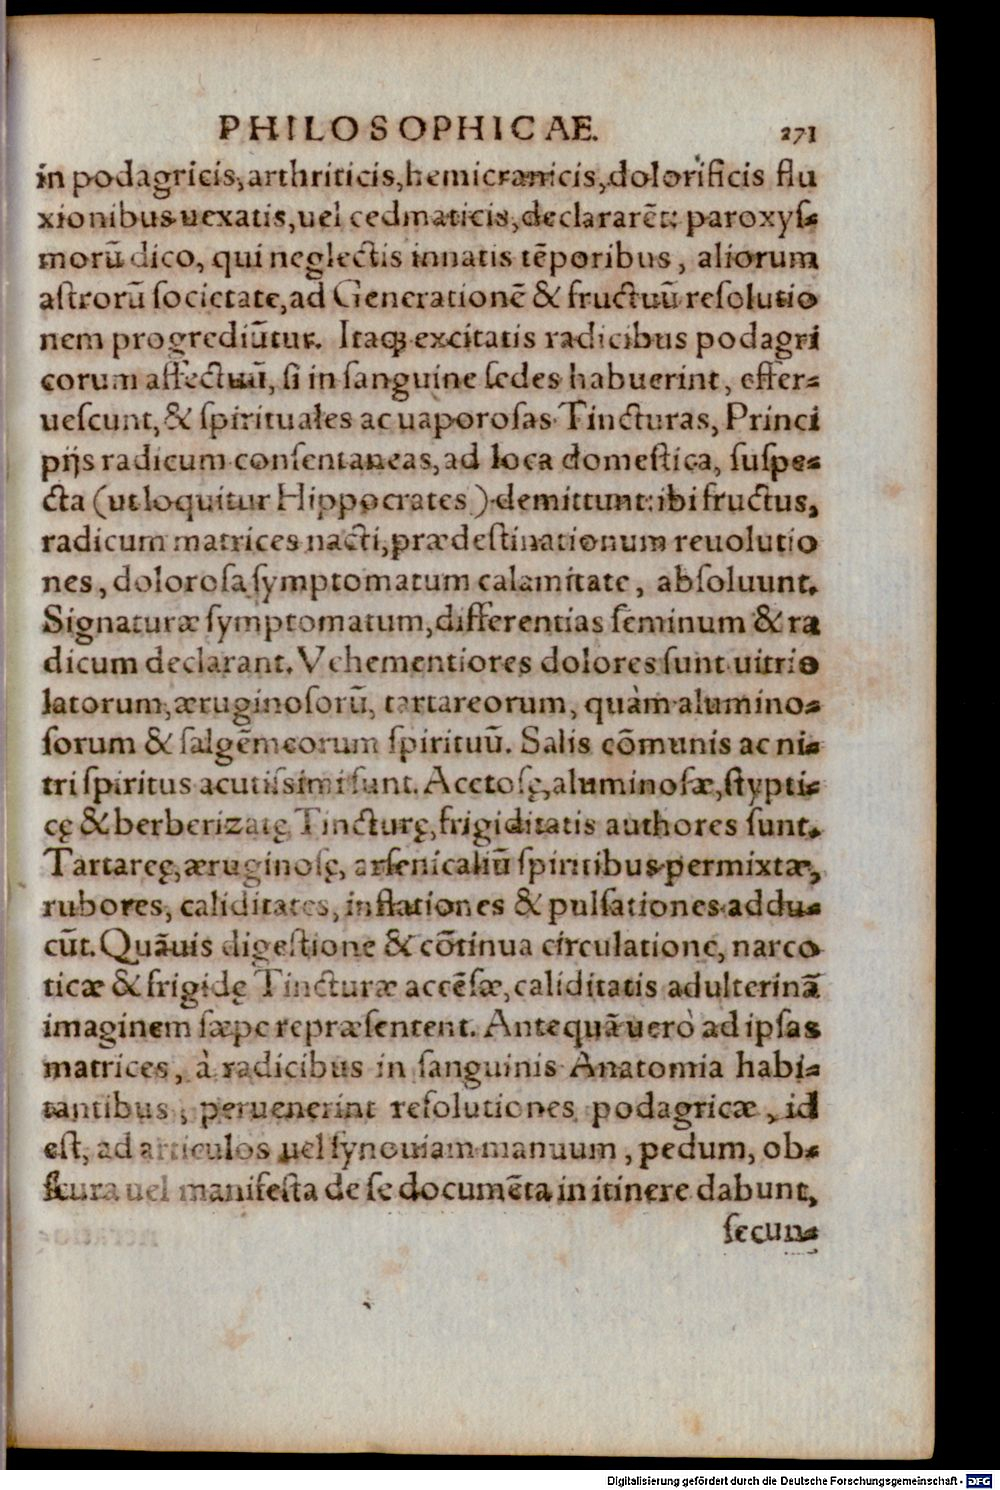 PHILOSOPHICAE. 271
in podagricis, arthriticis, hemicranicis, dolorificis flu
xionibus uexatis, uel cedmaticis, declararēt: paroxyſ-
morū dico, qui neglectis innatis tēporibus, aliorum
aſtrorū ſocietate, ad Generationē & fructuū reſolutio
nem progrediūtur. Itaq; excitatis radicibus podagri
corum affectuū, ſi in ſanguine ſedes habuerint, effer-
ueſcunt, & ſpirituales ac uaporoſas Tincturas, Princi
pijs radicum conſentaneas, ad loca domeſtica, ſuſpe-
cta (ut loquitur Hippocrates) demittunt: ibi fructus,
radicum matrices nacti, prædeſtinationum reuolutio
nes, doloroſa ſymptomatum calamitate, abſoluunt.
Signaturæ ſymptomatum, differentias ſeminum & ra
dicum declarant. Vehementiores dolores ſunt uitrio
latorum, æruginoſorū, tartareorum, quàm alumino-
ſorum & ſalgēmeorum ſpirituū. Salis cōmunis ac ni-
tri ſpiritus acutiſsimi ſunt. Acetoſę, aluminoſæ, ſtypti-
cę & berberizatę Tincturę, frigiditatis authores ſunt.
Tartareę, æruginoſę, arſenicaliū ſpiritibus permixtæ,
rubores, caliditates, inflationes & pulſationes addu-
cūt. Quāuis digeſtione & cōtinua circulatione, narco
ticæ & frigidę Tincturæ accēſæ, caliditatis adulterinā
imaginem ſæpe repræſentent. Antequā uerò ad ipſas
matrices, à radicibus in ſanguinis Anatomia habi-
tantibus, peruenerint reſolutiones podagricæ, id
eſt, ad articulos uel ſynouiam manuum, pedum, ob-
ſcura uel manifeſta de ſe documēta in itinere dabunt,
ſecun-
Digitalisierung gefördert durch die Deutsche Forschungsgemeinschaft - DFG